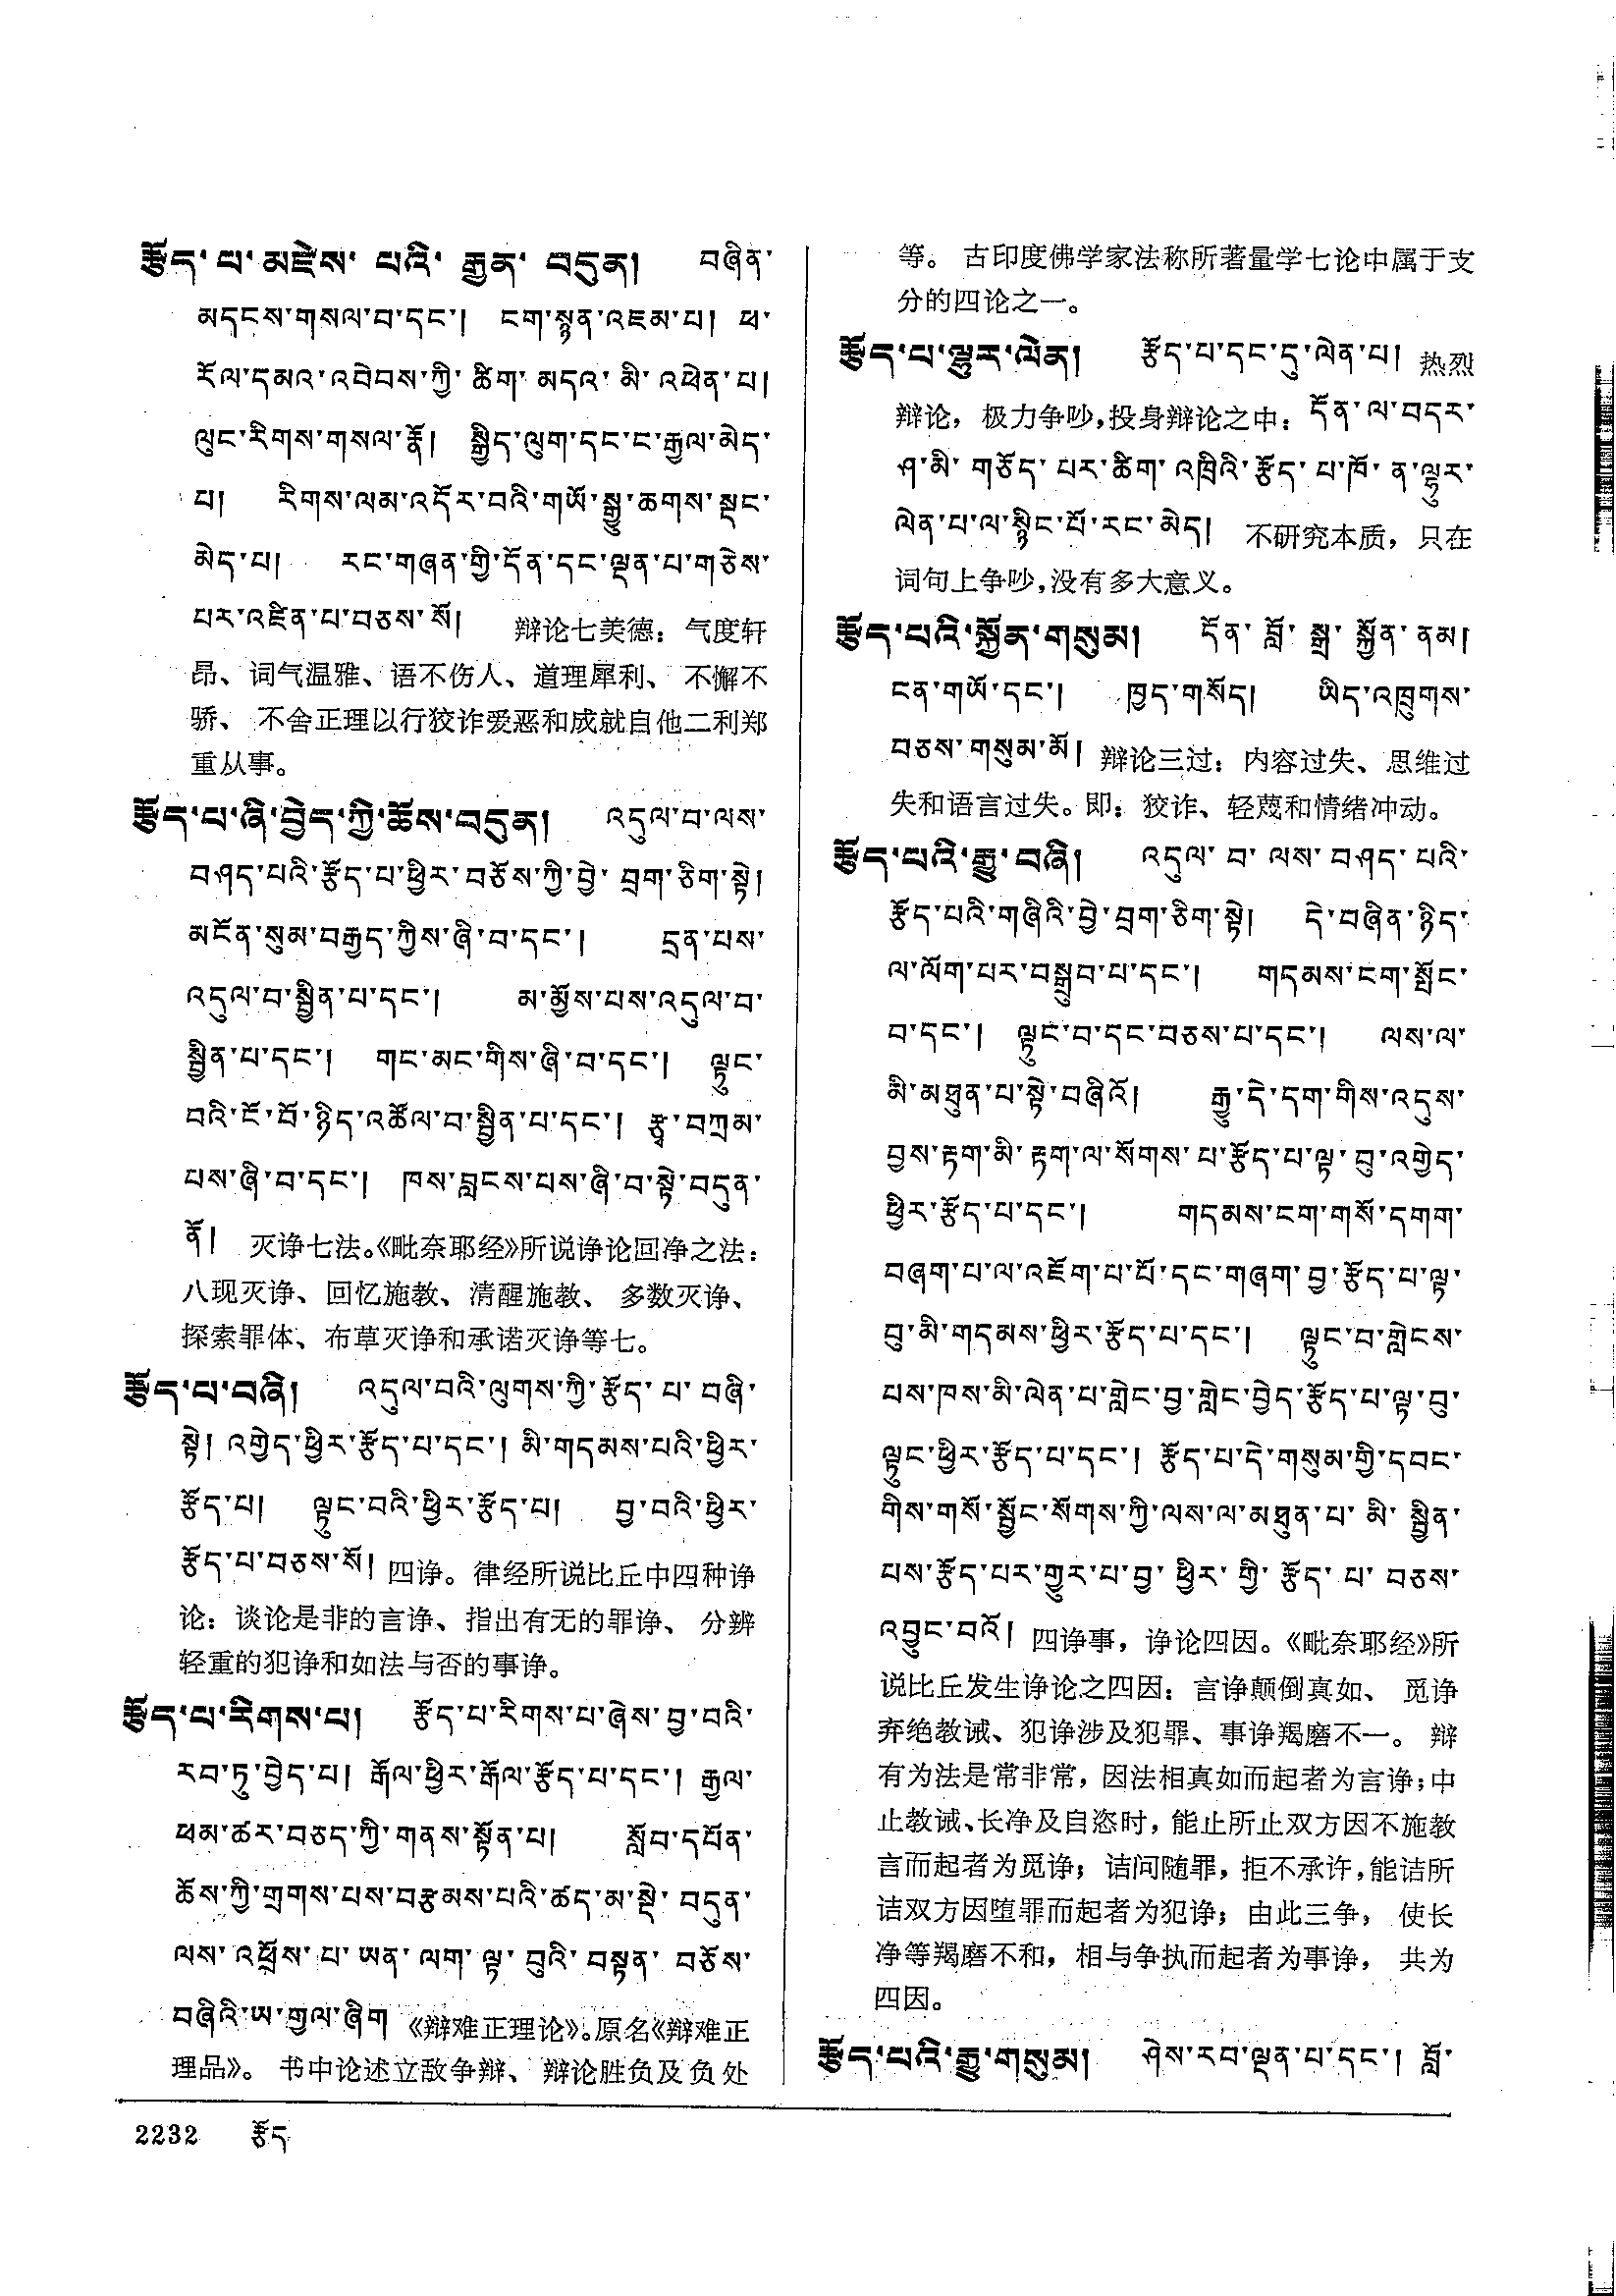 རྩོད་པ་མཛེས་པའི་རྒྱན་བདུན། བཞིན་
མདངས་གསལ་བ་དང་། ངག་སྙན་འཇམ་པ། ཕ་
རོལ་དམའ་འབེབས་ཀྱི་ཚིག་མདའ་མི་འཕེན་པ།
ལུང་རིགས་གསལ་རྣོ། སྒྱིད་ལུག་དང་ང་རྒྱལ་མེད་
པ། རིགས་ལམ་འདོར་བའི་གཡོ་སྒྱུ་ཆགས་སྡང་
མེད་པ། རང་གཞན་གྱི་དོན་དང་ལྡན་པ་གཅེས་
པར་འཛིན་པ་བཅས་སོ། 辩论七美德：气度轩
昂、词气温雅、语不伤人、道理犀利、不懈不
骄、不舍正理以行狡诈爱恶和成就自他二利郑
重从事。
རྩོད་པ་ཞི་བྱེད་ཀྱི་ཆོས་བདུན། འདུལ་བ་ལས་
བཤད་པའི་རྩོད་པ་ཕྱིར་བཅོས་ཀྱི་བྱེ་བྲག་ཅིག་སྟེ།
མངོན་སུམ་བརྒྱད་ཀྱིས་ཞི་བ་དང་། དྲན་པས་
འདུལ་བ་སྦྱིན་པ་དང་། མ་མྱོས་པས་འདུལ་བ་
སྦྱིན་པ་དང་། གང་མང་གིས་ཞི་བ་དང་། ལྟུང་
བའི་ངོ་བོ་ཉིད་འཚོལ་བ་སྦྱིན་པ་དང་། རྩྭ་བཀྲམ་
པས་ཞི་བ་དང་། ཁས་བླངས་པས་ཞི་བ་སྟེ་བདུན་
ནོ། 灭诤七法。《毗奈耶经》所说诤论回净之法：
八现灭诤、回忆施教、清醒施教、多数灭诤、
探索罪体、布草灭诤和承诺灭诤等七。
རྩོད་པ་བཞི། འདུལ་བའི་ལུགས་ཀྱི་རྩོད་པ་བཞི་
སྟེ། འགྱེད་ཕྱིར་རྩོད་པ་དང་། མི་གདམས་པའི་ཕྱིར་
རྩོད་པ། ལྟུང་བའི་ཕྱིར་རྩོད་པ། བྱ་བའི་ཕྱིར་
རྩོད་པ་བཅས་སོ། 四诤。律经所说比丘中四种诤
论：谈论是非的言诤、指出有无的罪诤、分辨
轻重的犯诤和如法与否的事诤。
རྩོད་པ་རིགས་པ། རྩོད་པ་རིགས་པ་ཞེས་བྱ་བའི་
རབ་ཏུ་བྱེད་པ། རྒོལ་ཕྱིར་རྒོལ་རྩོད་པ་དང་། རྒྱལ་
ཕམ་ཚར་བཅད་ཀྱི་གནས་སྟོན་པ། སློབ་དཔོན་
ཆོས་ཀྱི་གྲགས་པས་བརྩམས་པའི་ཚད་མ་སྡེ་བདུན་
ལས་འཕྲོས་པ་ཡན་ལག་ལྟ་བུའི་བསྟན་བཅོས་
བཞིའི་ཨ་གྱལ་ཞིག 《辩难正理论》。原名《辩难正
理品》。书中论述立敌争辩、辩论胜负及负处
等。古印度佛学家法称所著量学七论中属于支
分的四论之一。
རྩོད་པ་ལྷུར་ལེན། རྩོད་པ་དང་དུ་ལེན་པ། 热烈
辩论，极力争吵，投身辩论之中：དོན་ལ་བདར་
ཤ་མི་གཅོད་པར་ཚིག་འཁྲིའི་རྩོད་པ་ཁོ་ན་ལྷུར་
ལེན་པ་ལ་སྙིང་པོ་རང་མེད། 不研究本质，只在
词句上争吵，没有多大意义。
རྩོད་པའི་སྐྱོན་གསུམ། དོན་བློ་སྒྲ་སྐྱོན་ནམ།
ངན་གཡོ་དང་། ཁྱད་གསོད། ཡིད་འཁྲུགས་
བཅས་གསུམ་མོ། 辩论三过：内容过失、思维过
失和语言过失。即：狡诈、轻蔑和情绪冲动。
རྩོད་པའི་རྒྱུ་བཞི། འདུལ་བ་ལས་བཤད་པའི་
རྩོད་པའི་གཞིའི་བྱེ་བྲག་ཅིག་སྟེ། དེ་བཞིན་ཉིད་
ལ་ལོག་པར་བསྒྲུབ་པ་དང་། གདམས་ངག་སྤོང་
བ་དང་། ལྟུང་བ་དང་བཅས་པ་དང་། ལས་ལ་
མི་མཐུན་པ་སྟེ་བཞིའོ། རྒྱུ་དེ་དག་གིས་འདུས་
བྱས་རྟག་མི་རྟག་ལ་སོགས་པ་རྩོད་པ་ལྟ་བུ་འགྱེད་
ཕྱིར་རྩོད་པ་དང་། གདམས་ངག་གསོ་དགག་
བཞག་པ་ལ་འཇོག་པ་པོ་དང་གཞག་བྱ་རྩོད་པ་ལྟ་
བུ་མི་གདམས་ཕྱིར་རྩོད་པ་དང་། ལྟུང་བ་གླེངས་
པས་ཁས་མི་ལེན་པ་གླེང་བྱ་གླེང་བྱེད་རྩོད་པ་ལྟ་བུ་
ལྟུང་ཕྱིར་རྩོད་པ་དང་། རྩོད་པ་དེ་གསུམ་གྱི་དབང་
གིས་གསོ་སྦྱོང་སོགས་ཀྱི་ལས་ལ་མཐུན་པ་མི་སྦྱིན་
པས་རྩོད་པར་གྱུར་པ་བྱ་ཕྱིར་གྱི་རྩོད་པ་བཅས་
འབྱུང་བའོ། 四诤事，诤论四因。《毗奈耶经》所
说比丘发生诤论之四因：言诤颠倒真如、觅诤
弃绝教诫、犯诤涉及犯罪、事诤羯磨不一。辩
有为法是常非常，因法相真如而起者为言诤；中
止教诫、长净及自恣时，能止所止双方因不施教
言而起者为觅诤；诘问随罪，拒不承许，能诘所
诘双方因堕罪而起者为犯诤；由此三争，使长
净等羯磨不和，相与争执而起者为事诤，共为
四因。
རྩོད་པའི་རྒྱུ་གསུམ། ཤེས་རབ་ལྡན་པ་དང་། བློ་
2232 རྩོད